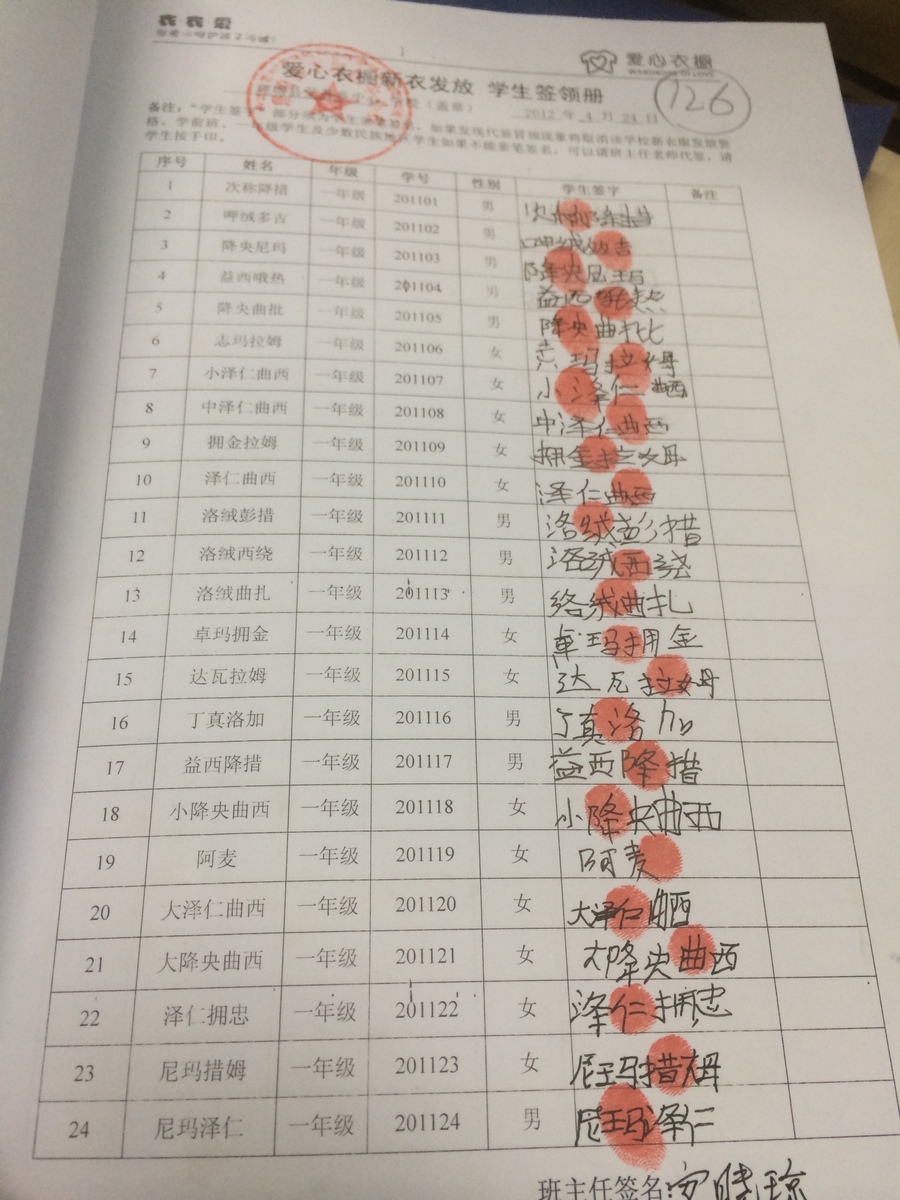 衣衣爱
爱心衣橱
WARDROBE OF LOVE
爱心衣橱新衣发放 学生签领册
126
(盖章)
2012 年 4 月 24 日
格。学前班、一年级学生及少数民族地区学生如果不能亲笔签名,可以请班主任老师代签,请
学生按手印。
序号 姓名 年级 学号 性别 学生签字 备注
1 次称降措 一年级 201101 男 次称降措
2 呷绒多吉 一年级 201102 男 呷绒多吉
3 降央尼玛 一年级 201103 男 降央尼玛
4 益西哦热 一年级 201104 男 益西哦热
5 降央曲批 一年级 201105 男 降央曲批
6 志玛拉姆 一年级 201106 女 志玛拉姆
7 小泽仁曲西 一年级 201107 女 小泽仁曲西
8 中泽仁曲西 一年级 201108 女 中泽仁曲西
9 拥金拉姆 一年级 201109 女 拥金拉姆
10 泽仁曲西 一年级 201110 女 泽仁曲西
11 洛绒彭措 一年级 201111 男 洛绒彭措
12 洛绒西绕 一年级 201112 男 洛绒西绕
13 洛绒曲扎 一年级 201113 男 络绒曲扎
14 卓玛拥金 一年级 201114 女 卓玛拥金
15 达瓦拉姆 一年级 201115 女 达瓦拉姆
16 丁真洛加 一年级 201116 男 丁真洛加
17 益西降措 一年级 201117 男 益西降措
18 小降央曲西 一年级 201118 女 小降央曲西
19 阿麦 一年级 201119 女 阿麦
20 大泽仁曲西 一年级 201120 女 大泽仁曲西
21 大降央曲西 一年级 201121 女 大降央曲西
22 泽仁拥忠 一年级 201122 女 泽仁拥忠
23 尼玛措姆 一年级 201123 女 尼玛措姆
24 尼玛泽仁 一年级 201124 男 尼玛泽仁
班主任签名: